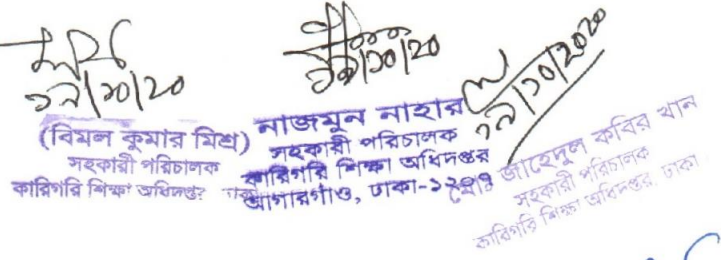 ১৯/১০/২০
(বিমল কুমার মিশ্র)
সহকারী পরিচালক
কারিগরি শিক্ষা অধিদপ্তর ঢাকা
১৯/১০/২০
নাজমুন নাহার
সহকারী পরিচালক
কারিগরি শিক্ষা অধিদপ্তর
আগারগাঁও, ঢাকা-১২০৭
১৯/১০/২০২০
মোঃ জাহেদুল কবির খান
সহকারী পরিচালক
কারিগরি শিক্ষা অধিদপ্তর, ঢাকা